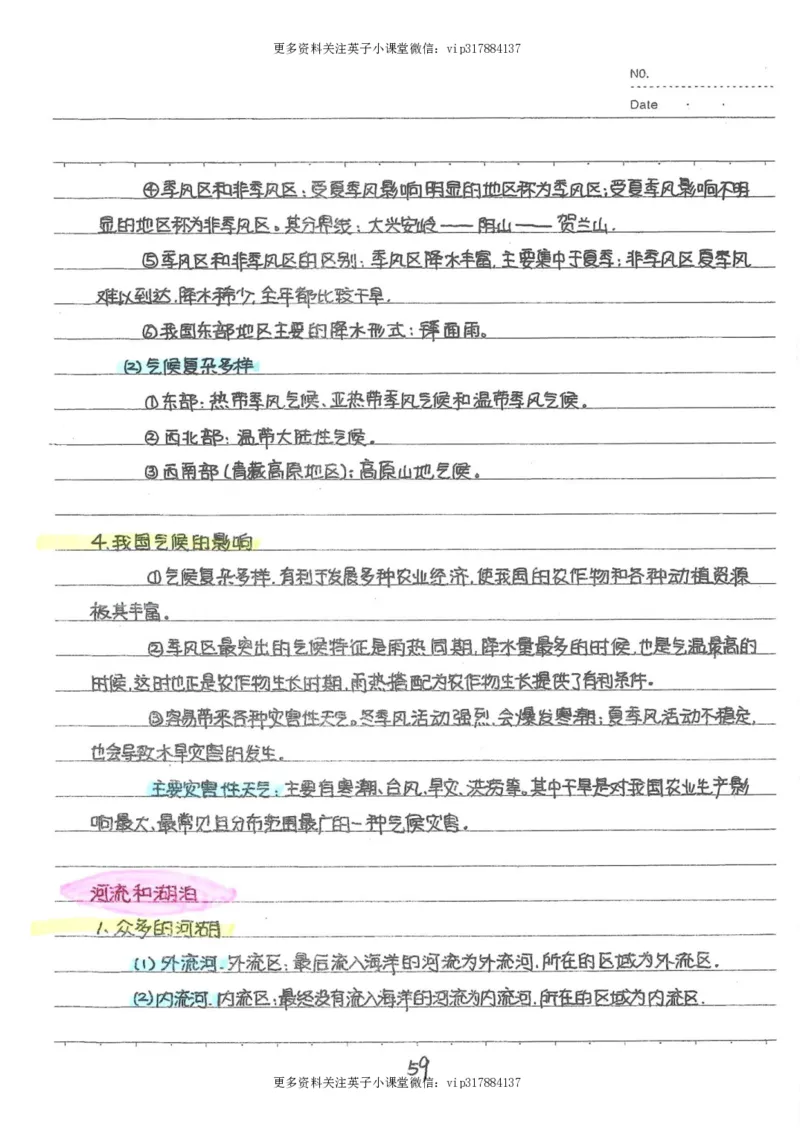 更多资料关注英子小课堂微信：vip317884137
NO.
Date
④季风区和非季风区：受夏季风影响明显的地区称为季风区；受夏季风影响不明
显的地区称为非季风区。其分界线：大兴安岭——阴山——贺兰山.
⑤季风区和非季风区的区别：季风区降水丰富,主要集中于夏季；非季风区夏季风
难以到达,降水稀少,全年都比较干旱.
⑥我国东部地区主要的降水形式：锋面雨。
(2)气候复杂多样
①东部：热带季风气候、亚热带季风气候和温带季风气候。
②西北部：温带大陆性气候。
③西南部(青藏高原地区)：高原山地气候。
4.我国气候的影响
①气候复杂多样,有利于发展多种农业经济,使我国的农作物和各种动植资源
极其丰富。
②季风区最突出的气候特征是雨热同期,降水量最多的时候,也是气温最高的
时候,这时也正是农作物生长时期,雨热搭配为农作物生长提供了有利条件。
③容易带来各种灾害性天气。冬季风活动强烈,会爆发寒潮；夏季风活动不稳定,
也会导致水旱灾害的发生。
主要灾害性天气：主要有寒潮、台风、旱灾、洪涝等。其中干旱是对我国农业生产影
响最大、最常见且分布范围最广的一种气候灾害。
河流和湖泊
1.众多的河湖
(1)外流河.外流区：最后流入海洋的河流为外流河.所在的区域为外流区.
(2)内流河.内流区：最终没有流入海洋的河流为内流河,所在的区域为内流区.
59
更多资料关注英子小课堂微信：vip317884137